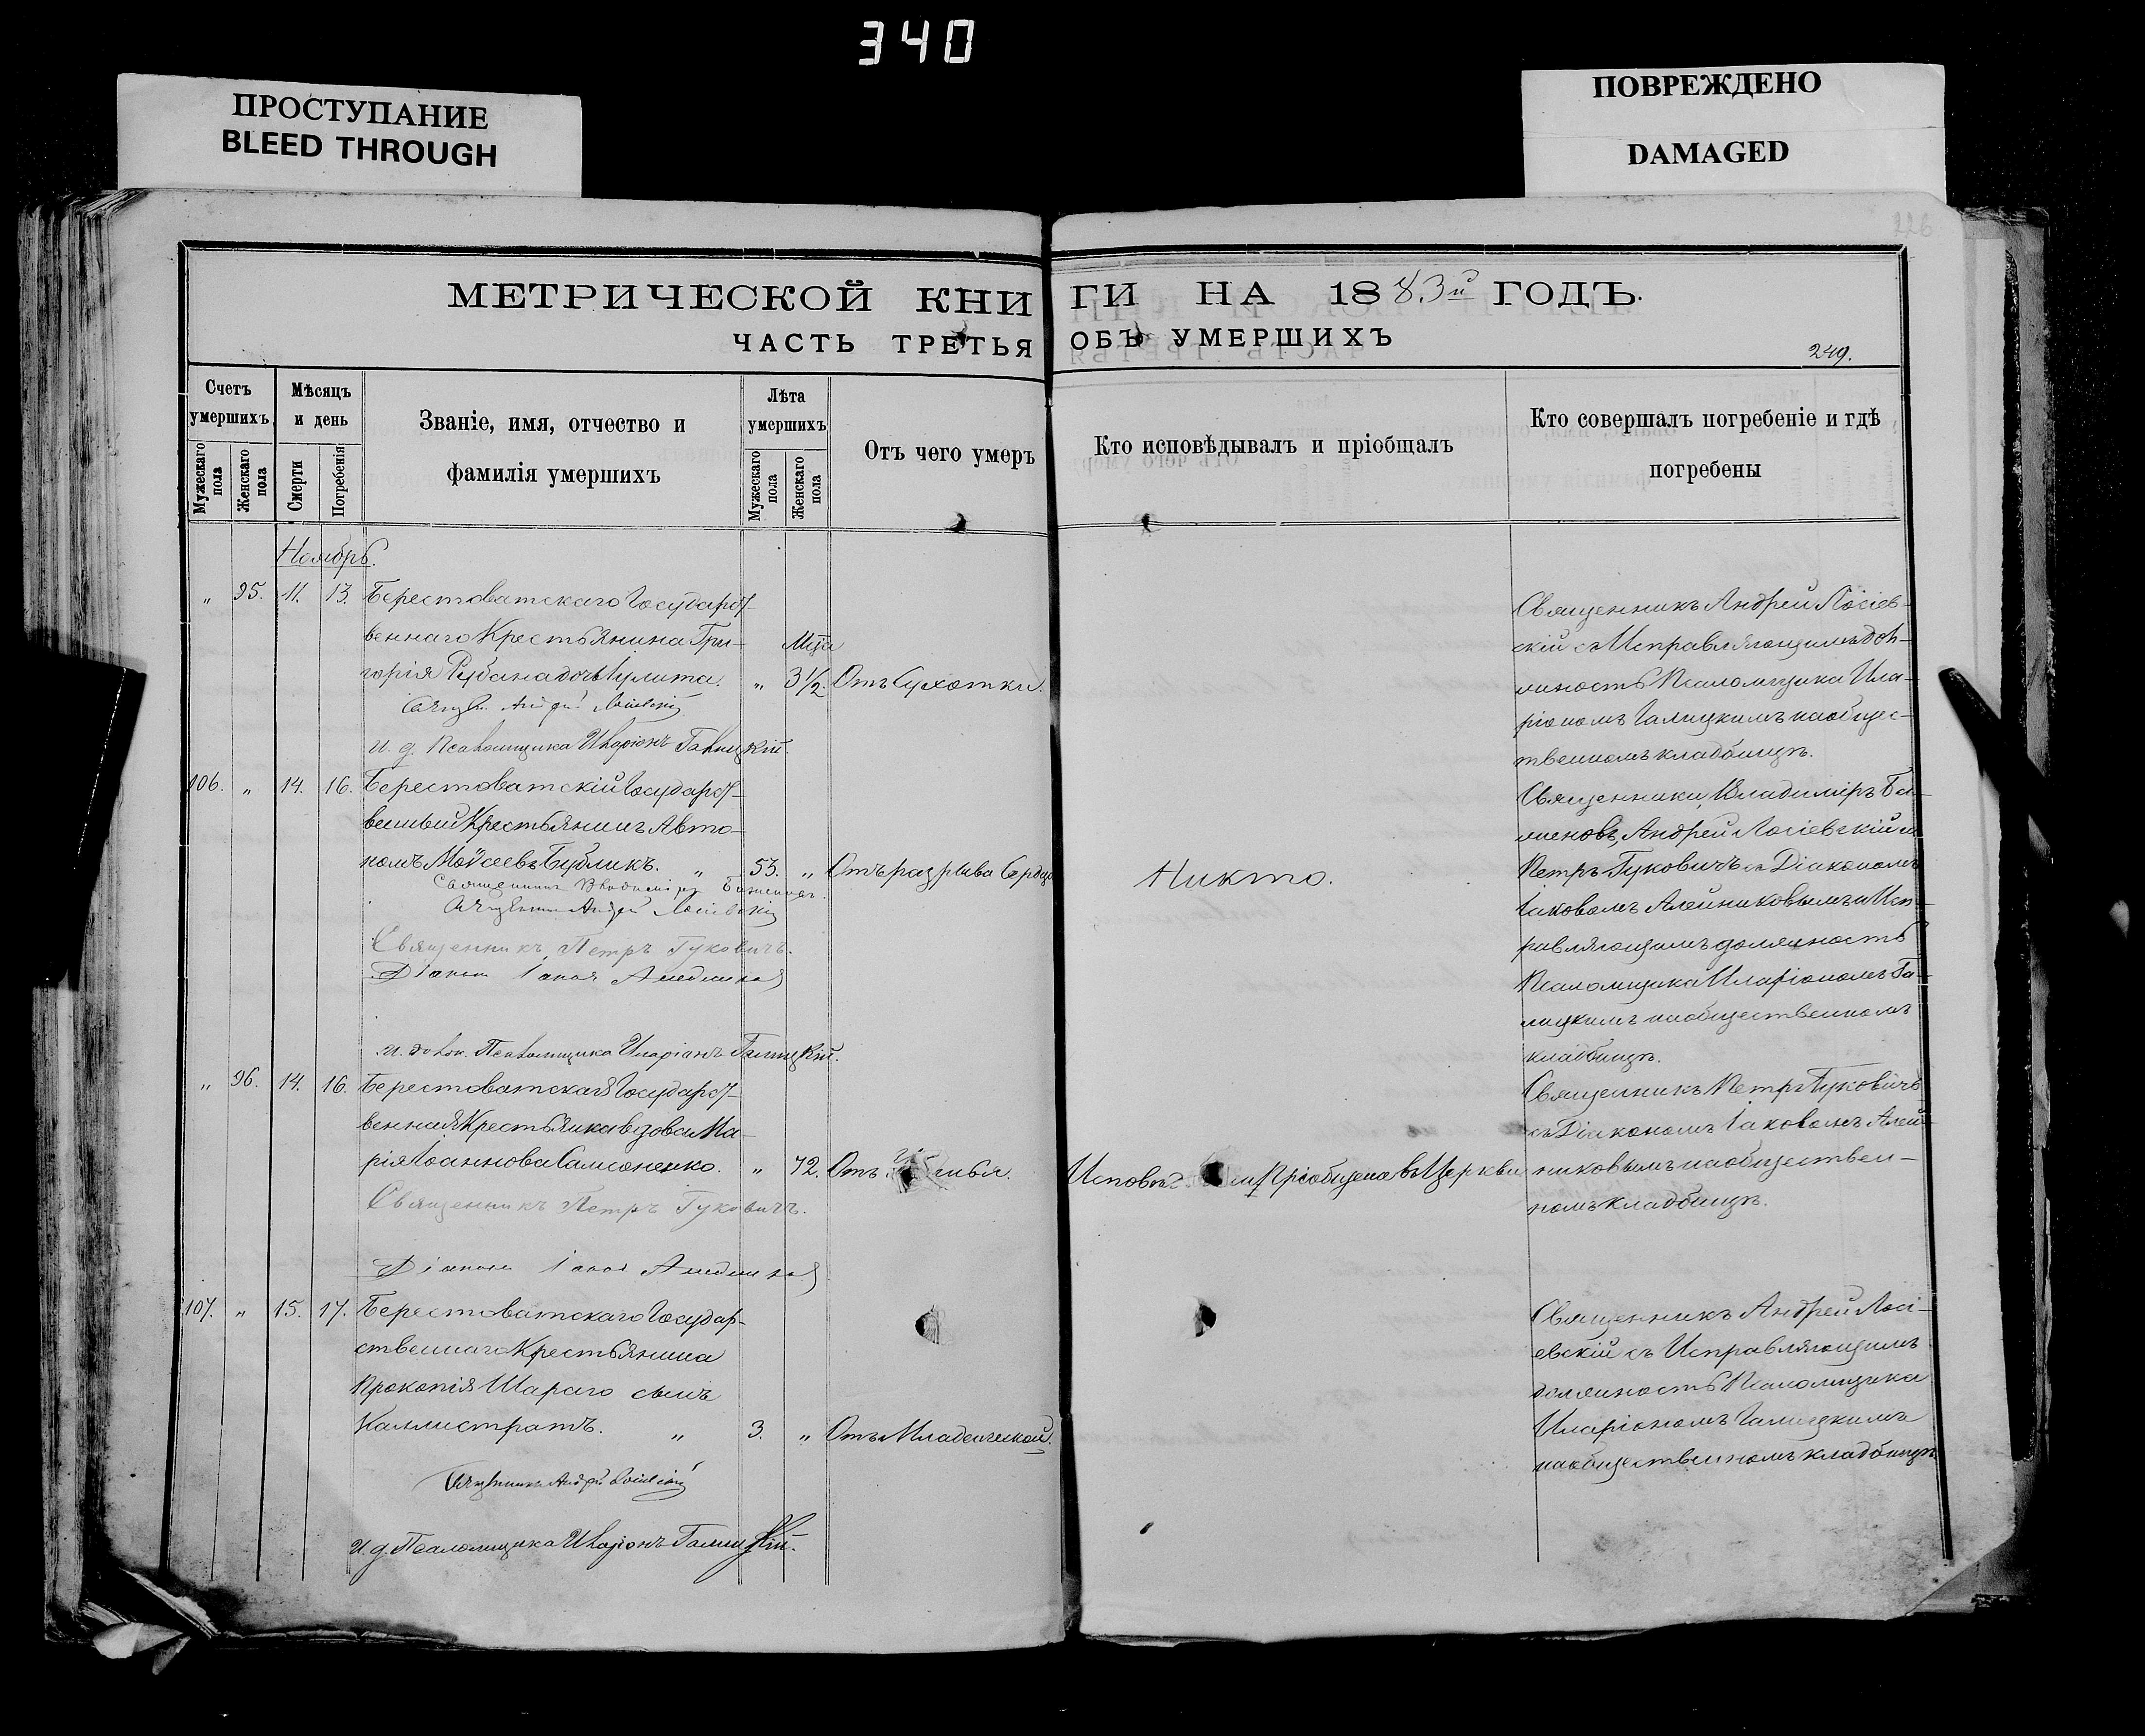 340
ПРОСТУПАНИЕ
BLEED THROUGH
ПОВРЕЖДЕНО
DAMAGED
226
МЕТРИЧЕСКОЙ КНИ
ГИ НА 1883й ГОДЪ.
ЧАСТЬ ТРЕТЬЯ
ОБЪ УМЕРШИХЪ
249.
Счетъ умершихъ
Мужескаго пола
Женскаго пола
Мѣсяцъ и день
Смерти
Погребенія
Званіе, имя, отчество и
фамилія умершихъ
Лѣта умершихъ
Мужескаго пола
Женскаго пола
Отъ чего умеръ
Кто исповѣдывалъ и пріобщалъ
Кто совершалъ погребеніе и гдѣ
погребены
Ноябрь.
„ 95. 11. 13. Берестоватскаго Государст-
веннаго Крестьянина Гри-
горія Рубана дочь Іулита. „ Мца 3½. Отъ Сухотки.
Андрей Лосіевскій
и. д. Псаломщика Иларіонъ Галицкій.
Священникъ Андрей Лосіев-
скій съ Исправляющимъ дол-
жность Псаломщика Ила-
ріономъ Галицкимъ на общес-
твенномъ кладбищѣ.
106. „ 14. 16. Берестоватскій Государст-
венный Крестьянинъ Авто-
номъ Мойсеевъ Бубликъ. „ 53. „ Отъ разрыва Сердца
Никто.
Священникъ Владиміръ Баженовъ.
Священникъ Андрей Лосіевскій
Священникъ Петръ Гуковичъ.
Діаконъ Іаковъ Алейниковъ
и. долж. Псаломщика Иларіонъ Галицкій.
Священники, Владиміръ Ба-
женовъ, Андрей Лосіевскій и
Петръ Гуковичъ съ Діакономъ
Іаковомъ Алейниковымъ и Исп-
равляющимъ должность
Псаломщика Иларіономъ Га-
лицкимъ на общественномъ
кладбищѣ.
„ 96. 14. 16. Берестоватская Государст-
венная Крестьянка вдова Ма-
рія Іоаннова Самсоненко. „ 72. Отъ
и Пріобщена въ Церкви
Священникъ Петръ Гуковичъ.
Діаконъ Іаковъ Алейниковъ
Священникъ Петръ Гуковичъ
съ Діакономъ Іаковомъ Алей-
никовымъ на обществен-
номъ кладбищѣ.
107. „ 15. 17. Берестоватскаго Государ-
ственнаго Крестьянина
Прокопія Шараго сынъ
Каллистратъ. „ 3. „ Отъ Младенческой.
Священникъ Андрей Лосіевскій
и. д. Псаломщика Иларіонъ Галицкій.
Священникъ Андрей Лосі-
евскій съ Исправляющимъ
должность Псаломщика
Иларіономъ Галицкимъ
на общественномъ кладбищѣ.